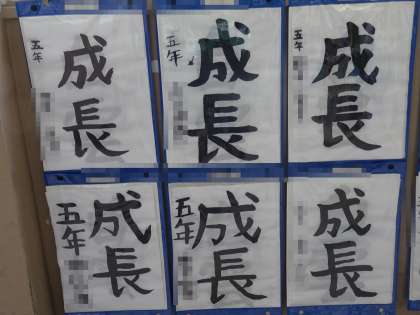 成長
五年
成長
五年
成長
五年
成長
五年
成長
五年
成長